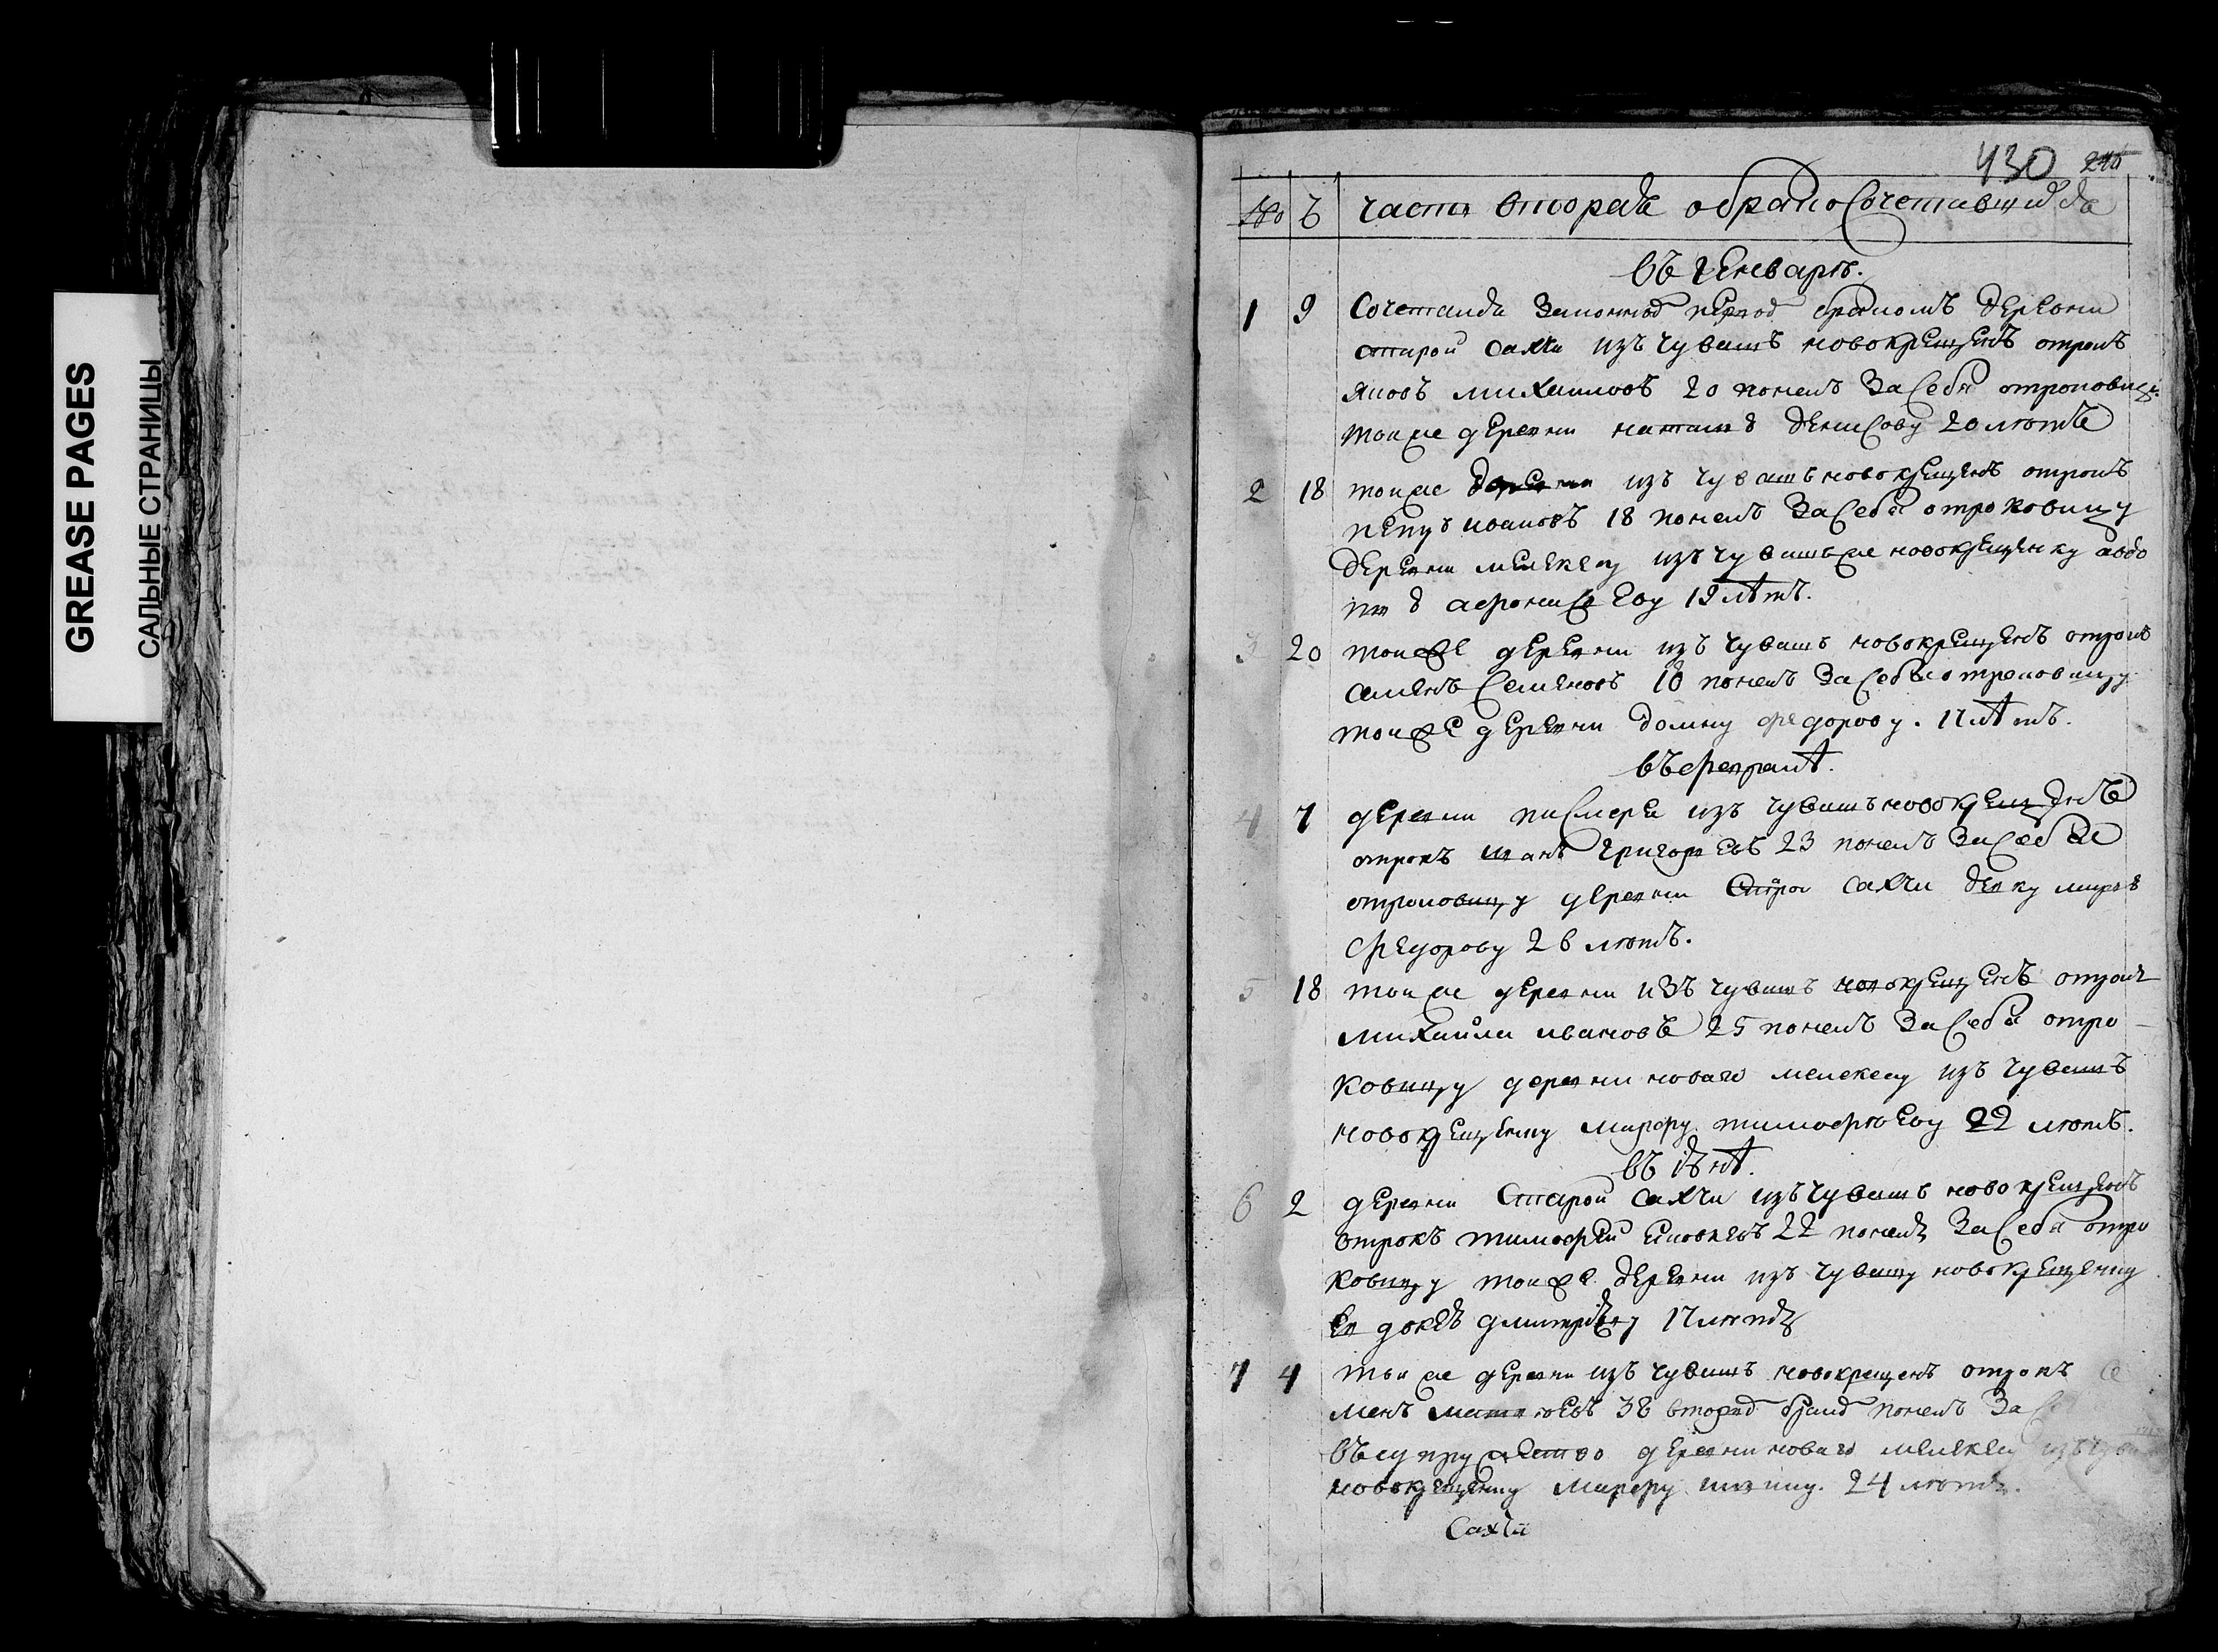 GREASE PAGES
САЛЬНЫЕ СТРАНИЦЫ
430 245
№ Ѣ часть вторая о бракосочетавшихся
въ генваре.
1 9 Сочетался законным первым браком деревни
старой сахчи изъ чувашъ новокрещенъ отрокъ
яковъ михаиловъ 20 понелъ за себя отроковицу
тои же деревни наталью денисову 20 летъ
2 18 тои же деревни изъ чувашъ новокрещенъ отрокъ
петръ ивановъ 18 понелъ за себя отроковицу
деревни мелекесу изъ чувашъ же новокрещенку авдо
тью афонасьеву 19 летъ.
3 20 тои же деревни изъ чувашъ новокрещенъ отрокъ
семенъ семеновъ 18 понелъ за себя отроковицу
тои же деревни домну федорову. 17 летъ.
въ феврале.
4 7 деревни писмерь изъ чувашъ новокрещенъ
отрокъ иванъ григорьевъ 23 понелъ за себя
отроковицу деревни старои сахчи девку марью
федорову 26 летъ.
5 18 тои же деревни изъ чувашъ новокрещенъ отрокъ
михаила ивановъ 25 понелъ за себя отро
ковицу деревни новаго мелекесу изъ чувашъ
новокрещенну марфу тимофееву 22 летъ.
въ июне.
6 2 деревни старои сахчи изъ чувашъ новокрещенъ
отрокъ тимофеи яковлевъ 22 понелъ за себя отро
ковицу тои же деревни изъ чувашъ новокрещенну
евдокею дмитриеву 17 летъ
7 4 тои же деревни изъ чувашъ новокрещенъ отрокъ се
менъ матвеевъ 38 вторым браком понелъ за се
въ супружество деревни новаго мелекесу изъ чува
новокрещенну марфу 24 летъ.
Сахчи